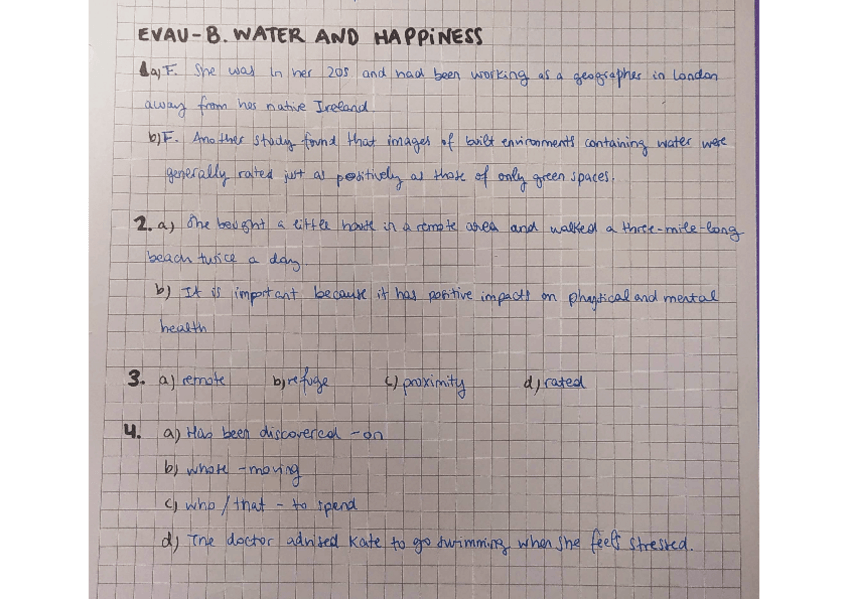 EVAU-B. WATER AND HAPPINESS
1a) F. She was in her 20s and had been working as a geographer in London
away from her native Ireland.
b) F. Another study found that images of built environments containing water were
generally rated just as positively as those of only green spaces.
2. a) She bought a little house in a remote area and walked a three-mile-long
beach twice a day.
b) It is important because it has positive impacts on physical and mental
health
3. a) remote b) refuge c) proximity d) rated
4. a) Has been discovered - on
b) whose - moving
c) who / that - to spend
d) The doctor advised Kate to go swimming when she feels stressed.